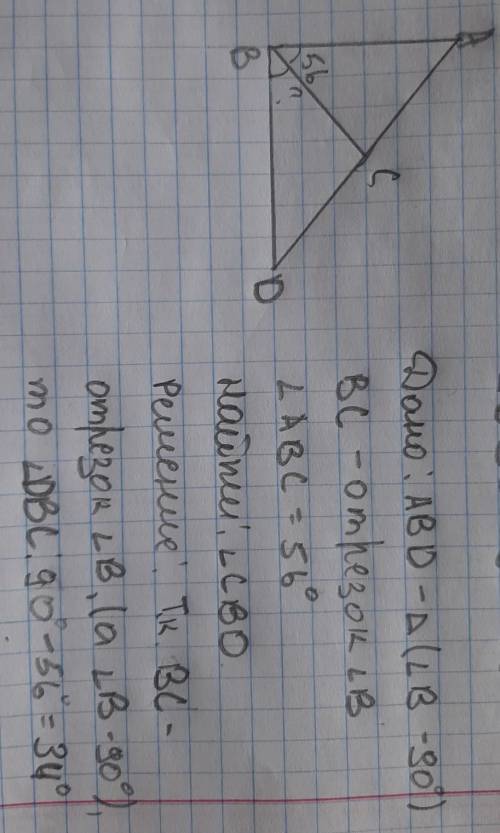 A
B
56
?
C
D
Дано: ABD - Δ (∠B - 90°)
BC - отрезок ∠B
∠ABC = 56°
Найти: ∠CBD
Решение: Т.к. BC -
отрезок ∠B, (а ∠B - 90°),
то ∠DBC: 90° - 56° = 34°